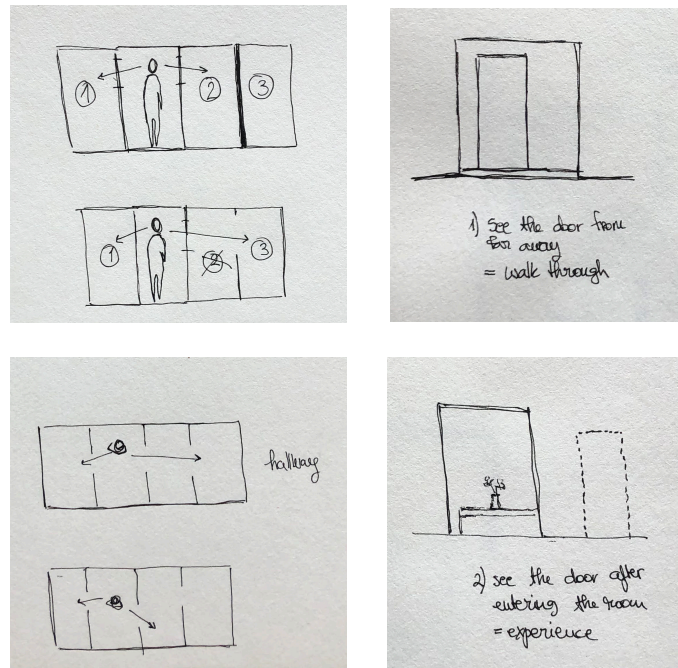 1
2
3
1
2
3
1) See the door from
far away
= walk through
hallway
2) see the door after
entering the room
= experience